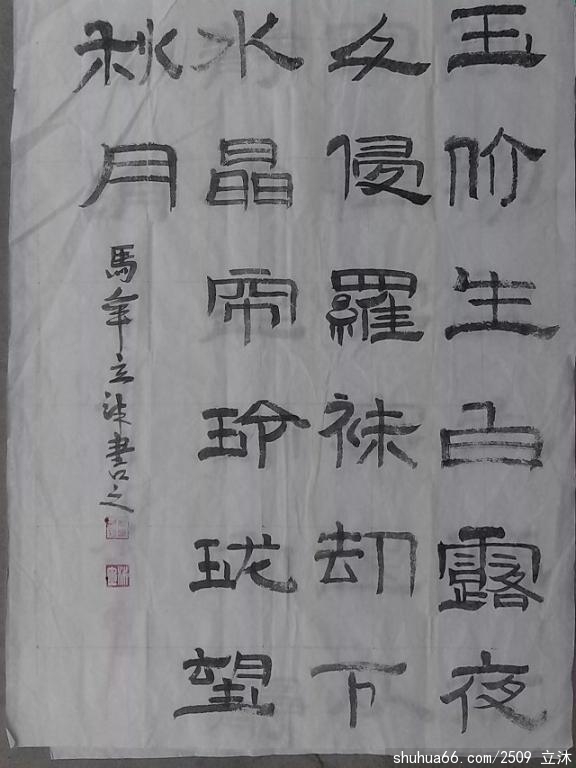 玉阶生白露夜
久侵羅袜却下
水晶帘玲珑望
秋月
馬年立沐書之
shuhua66.com/2509 立沐